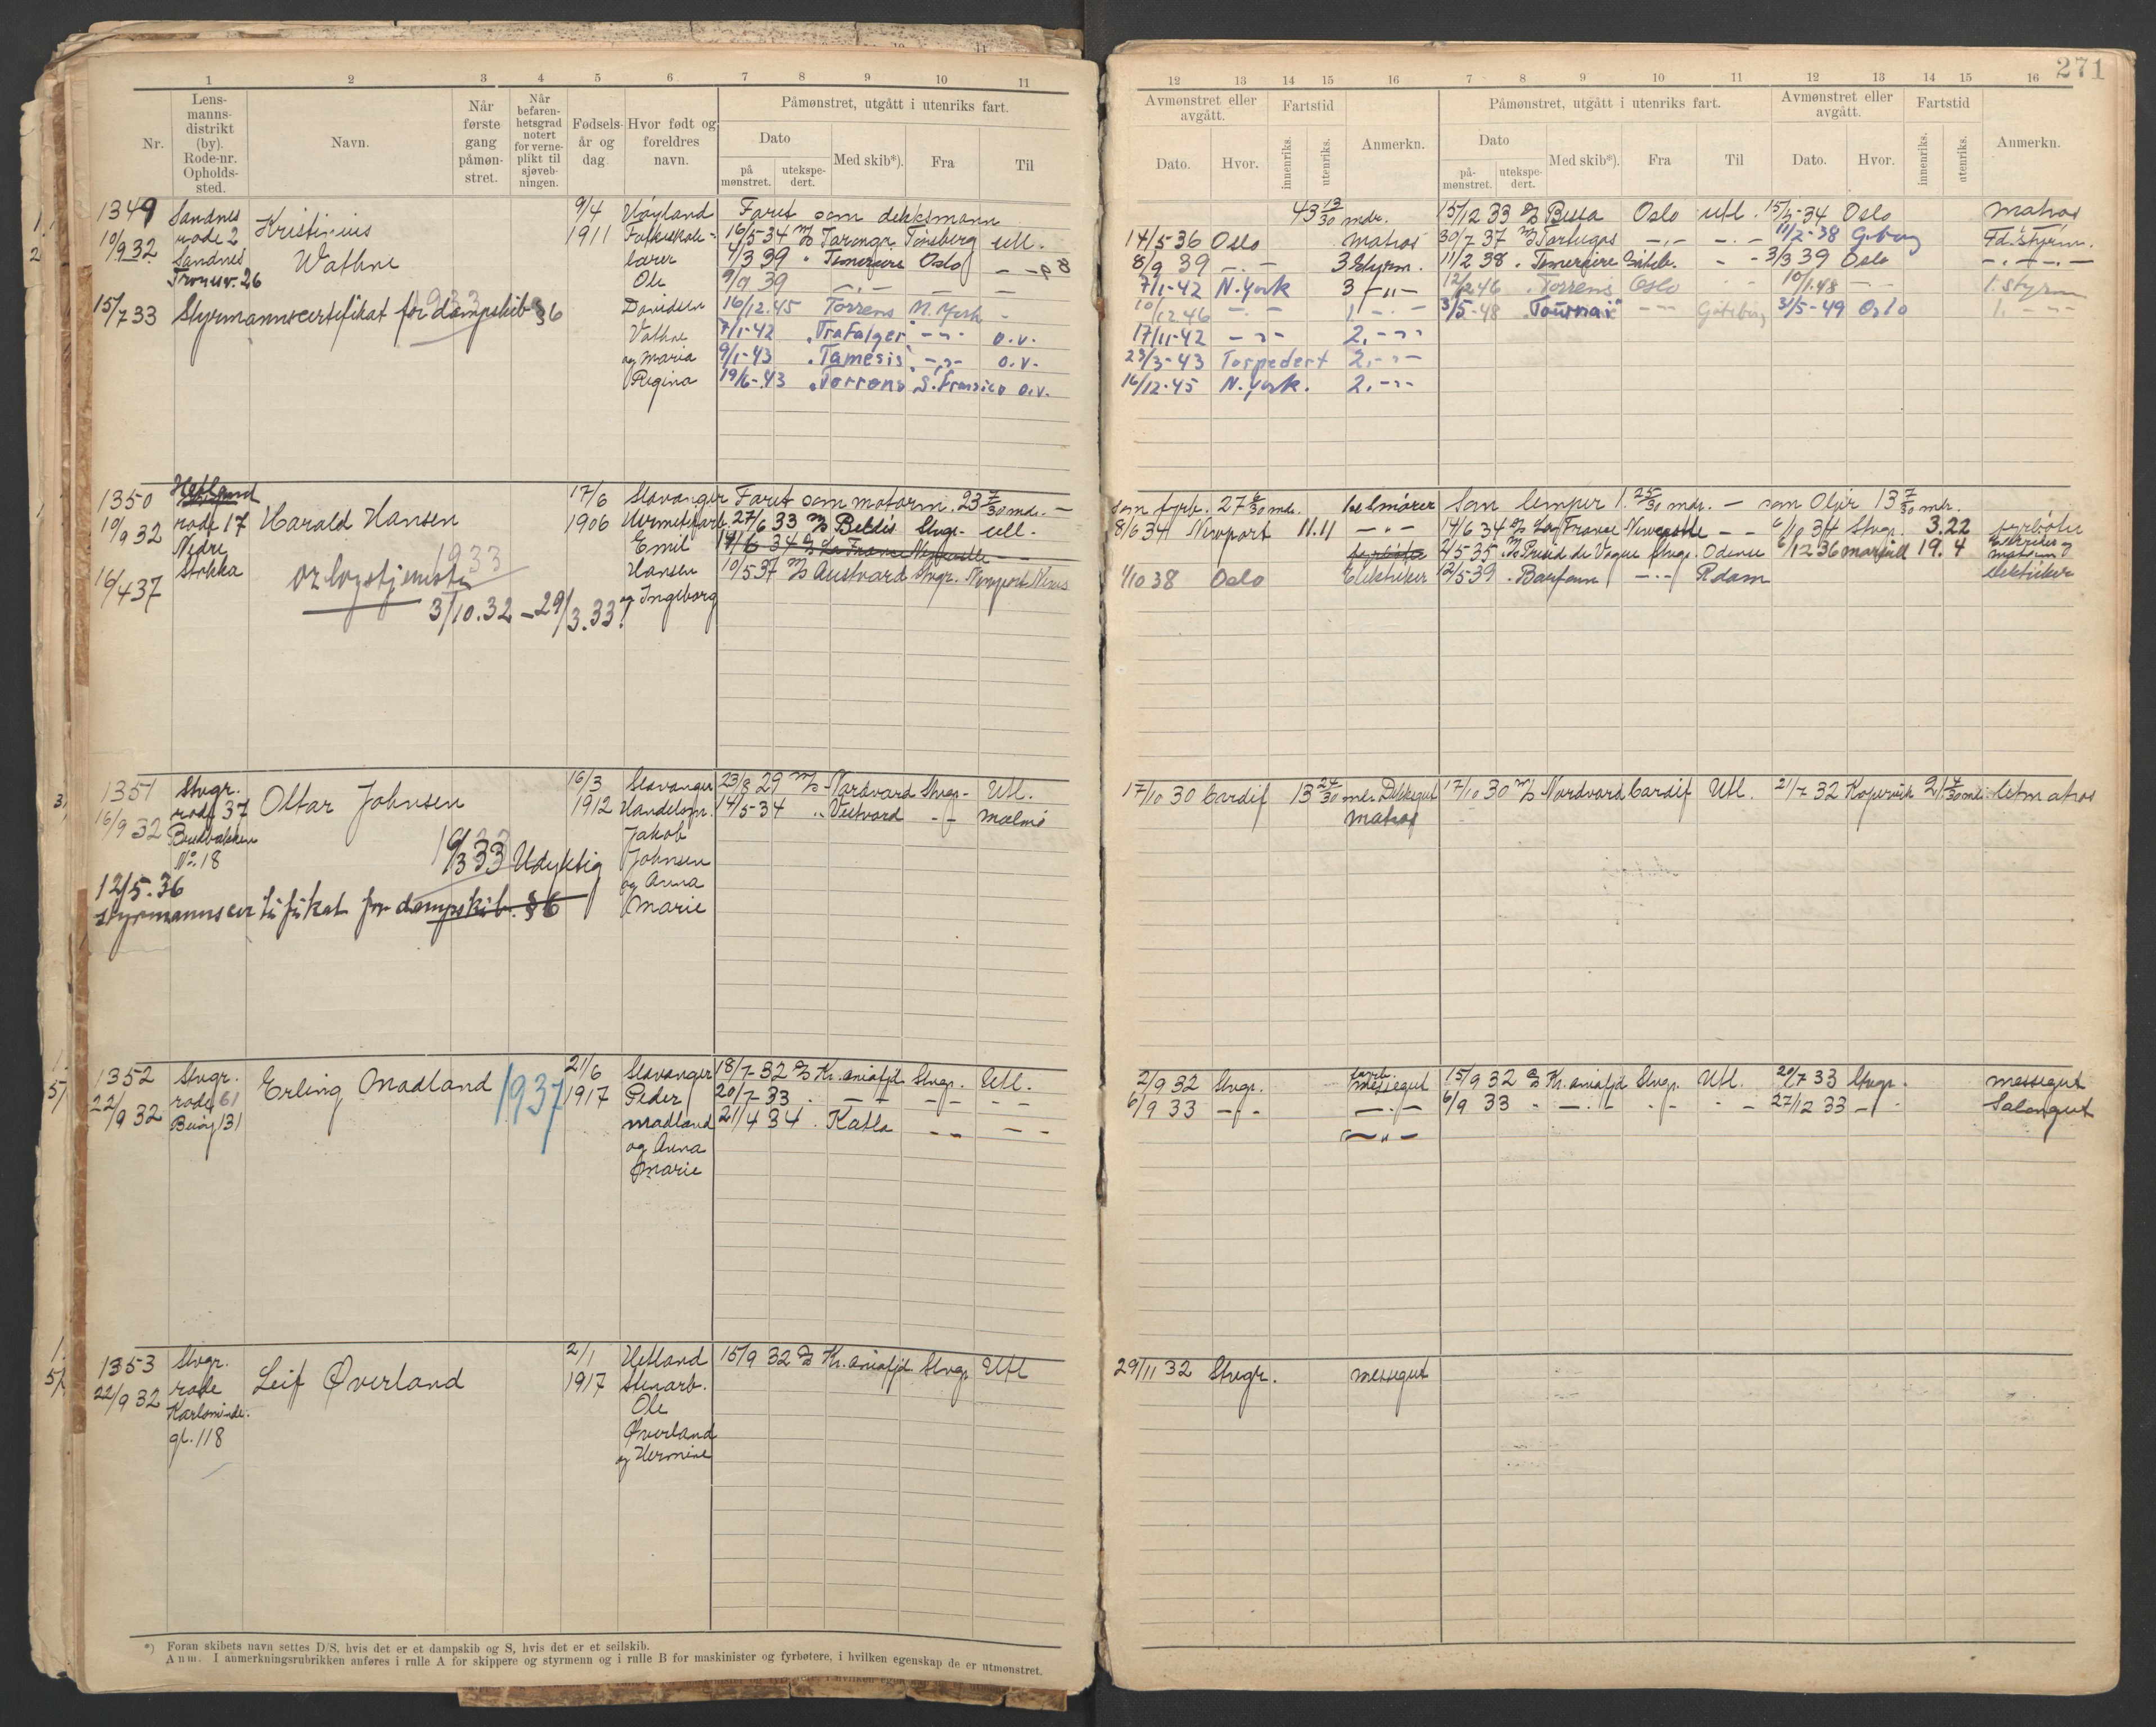 1 2 3 4 5 6 7 8 9 10 11
Nr.
Lens-
manns-
distrikt
(by).
Rode-nr.
Opholds-
sted.
Navn.
Når
første
gang
påmøn-
stret.
Når
befaren-
hetsgrad
notert
for verne-
plikt til
sjøveb-
ningen.
Fødsels-
år og
dag.
Hvor født og
foreldres
navn.
Påmønstret, utgått i utenriks fart.
Dato
på
mønstret.
utekspe-
dert.
Med skib*).
Fra
Til
1349 Sandnes Kristinius 9/4 Høyland Faret som dekksmann
10/9 32 rode 2 Wathne 1911 Folkeskole- 16/5 34 M/S Tarongr. Tønsberg utl.
Sandnes lærer 4/3 39 " Temeraire Oslo - -
26 Ole 9/9 39 - - - -
15/7 33 Styrmannscertifikat for dampskib §6 1933 Davidsen 16/12.45 Torrens N. York -
Vathne 7/1-42 "Trafalger" -"- o.v.
og Maria 9/1-43 "Tamesis" -"- o.v.
Regina 19/6-43 "Torrens S. Fransico o.v.
1350 Hetland 17/6 Stavanger Faret som motorm. 23 7/30 mdr. -
10/9 32 rode 17 Harald Hansen 1906 27/6 33 M/S Beldis Stvgr. utl.
Nedre Emil 14/6 34 M/S La France Newcastle -
Stokka Hansen 10/5 37 M/S Austvard Stvgr. Newport News
16/4 37 orlogstjeneste 1933 og Ingeborg
3/10.32 - 29/3.33.
1351 Stvgr. 16/3 Stavanger 23/8 29 M/S Nordvard Stvgr. Utl.
16/9 32 rode 37 Ottar Johnsen 1912 Handelsm. 14/5-34 " Vestvard - - Malmø
No. 18 Jakob
16/3 33 Udyktig Johnsen
12/5.36 og Anna
Styrmannscertifikat for dampskib. §6 Marie
1352 Stvgr. 21/6 Stavanger 18/7-32 D/S Kr.aniafjd Stvgr. Utl.
22/9 32 rode 61 Erling Madland 1937 1917 Peder 20/7-33 . - - - - - -
131 Madland 21/4 34 . Katla - - - -
og Anna
Marie
1353 Stvgr. 2/1 Hetland 15/9 32 D/S Kr.aniafjd. Stvgr. Utl
22/9 32 rode Leif Øverland 1917 Stenarb.
Karlsminde- Ole
gt. 118 Øverland
og Hermine
*) Foran skibets navn settes D/S, hvis det er et dampskib og S, hvis det er et seilskib.
Anm. I anmerkningsrubrikken anføres i rulle A for skippere og styrmenn og i rulle B for maskinister og fyrbøtere, i hvilken egenskap de er utmønstret.
271
12 13 14 15 16 7 8 9 10 11 12 13 14 15 16
Avmønstret eller
avgått.
Dato.
Hvor.
Fartstid
innenriks.
utenriks.
Anmerkn.
Påmønstret, utgått i utenriks fart.
Dato
på-
mønstret.
utekspe-
dert.
Med skib*).
Fra
Til
Avmønstret eller
avgått.
Dato.
Hvor.
Fartstid
innenriks.
utenriks.
Anmerkn.
43 13/30 mdr. 15/12 33 D/S Bessa Oslo utl. 15/3-34 Oslo Matros
14/5 36 Oslo Matros 30/7 37 M/S Tortugas -"- -"- 11/2-38 G.borg Fd. Styrm.
8/9 39 -"- 3 Styrm. 11/2 38 . Temeraire Göteb. - - 3/3 39 Oslo -"-
7/1-42 N. York 3 -"- 12/2 46 . Torrens Oslo - - 10/1.48 - - 1. styrm
10/12.46 - - 1. -"- 3/5-48 "Tournai" -"- Göteborg 3/5-49 Oslo 1. -"-
17/11-42 -"- 2. -"-
23/3-43 Torpedert 2. -"-
16/12-45 N. York. 2. -"-
Som fyrb. 27 mdr. Som lemper 1. 25/30 mdr. - som Oljer 13 7/30 mdr.
8/6 34 Newport 11.11 -"- 14/6 34 La France Newcastle - - 6/10 34 Stvgr. 3.22 fyrbøter
fyrbøter 2/5-35 Stvgr. Odense 6/12 36 19.4
4/10 38 Oslo Elektriker 12/5-39 . -"- R.dam elektriker
17/10 30 Cardif 13 24/30 mdr. Dekksgut 17/10 30 M/S Nordvard Cardif Utl. 21/7 32 Kopervik 21 4/30 mdr. Letmatros
Matros
2/9 32 Stvgr. messegut 15/9 32 D/S Kr.aniafjd Stvgr. Utl. 20/7 33 Stvgr. messegut
6/9 33 -"- -"- 6/9 33 " -"- -"- - - 27/12 33 -"- Salongut
-"-
29/11 32 Stvgr. messegut